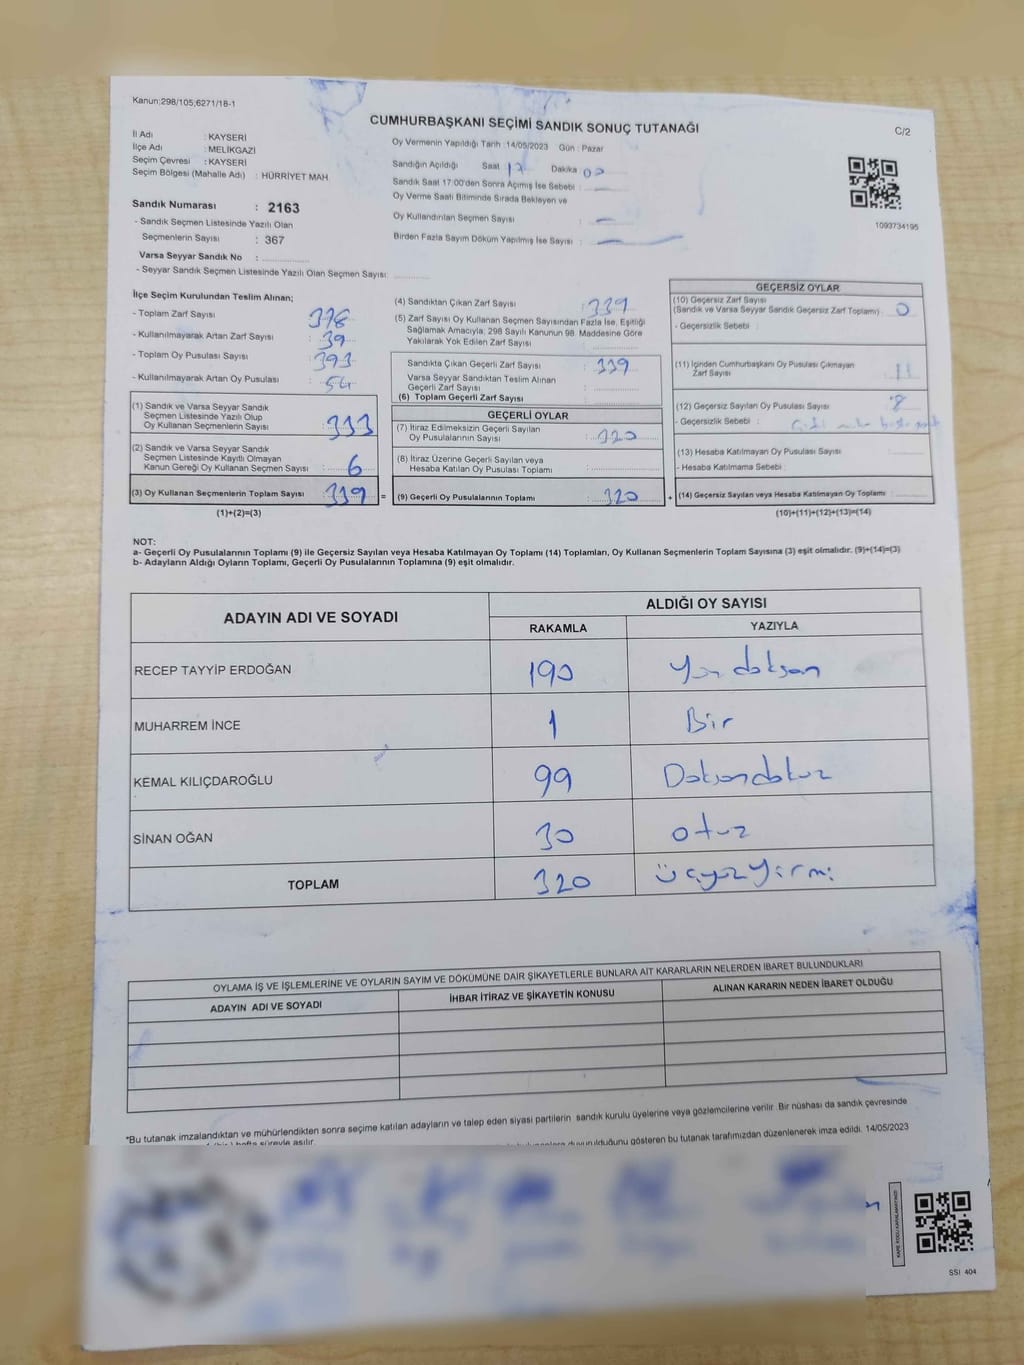 Kanun;298/105;6271/18-1
CUMHURBAŞKANI SEÇİMİ SANDIK SONUÇ TUTANAĞI
C/2
İl Adı : KAYSERİ
İlçe Adı : MELİKGAZİ
Seçim Çevresi : KAYSERİ
Seçim Bölgesi (Mahalle Adı) : HÜRRİYET MAH.
Sandık Numarası : 2163
- Sandık Seçmen Listesinde Yazılı Olan
Seçmenlerin Sayısı : 367
Varsa Seyyar Sandık No :
- Seyyar Sandık Seçmen Listesinde Yazılı Olan Seçmen Sayısı:
Oy Vermenin Yapıldığı Tarih :14/05/2023 Gün : Pazar
Sandığın Açıldığı Saat 17 Dakika 00
Sandık Saat 17:00'den Sonra Açımış İse Sebebi : —
Oy Verme Saati Bitiminde Sırada Bekleyen ve
Oy Kullandırılan Seçmen Sayısı : —
Birden Fazla Sayım Döküm Yapılmış İse Sayısı : —
1093734195
İlçe Seçim Kurulundan Teslim Alınan;
- Toplam Zarf Sayısı : 378
- Kullanılmayarak Artan Zarf Sayısı : 39
- Toplam Oy Pusulası Sayısı : 393
- Kullanılmayarak Artan Oy Pusulası : 54
(1) Sandık ve Varsa Seyyar Sandık
Seçmen Listesinde Yazılı Olup
Oy Kullanan Seçmenlerin Sayısı : 333
(2) Sandık ve Varsa Seyyar Sandık
Seçmen Listesinde Kayıtlı Olmayan
Kanun Gereği Oy Kullanan Seçmen Sayısı : 6
(3) Oy Kullanan Seçmenlerin Toplam Sayısı : 339 =
(1)+(2)=(3)
(4) Sandıktan Çıkan Zarf Sayısı : 339
(5) Zarf Sayısı Oy Kullanan Seçmen Sayısından Fazla İse, Eşitliği
Sağlamak Amacıyla; 298 Sayılı Kanunun 98. Maddesine Göre
Yakılarak Yok Edilen Zarf Sayısı :
Sandıkta Çıkan Geçerli Zarf Sayısı : 339
Varsa Seyyar Sandıktan Teslim Alınan
Geçerli Zarf Sayısı :
(6) Toplam Geçerli Zarf Sayısı :
GEÇERLİ OYLAR
(7) İtiraz Edilmeksizin Geçerli Sayılan
Oy Pusulalarının Sayısı : 320
(8) İtiraz Üzerine Geçerli Sayılan veya
Hesaba Katılan Oy Pusulası Toplamı :
(9) Geçerli Oy Pusulalarının Toplamı : 320 +
GEÇERSİZ OYLAR
(10) Geçersiz Zarf Sayısı
(Sandık ve Varsa Seyyar Sandık Geçersiz Zarf Toplamı) : 0
- Geçersizlik Sebebi :
(11) İçinden Cumhurbaşkanı Oy Pusulası Çıkmayan
Zarf Sayısı : 11
(12) Geçersiz Sayılan Oy Pusulası Sayısı : 8
- Geçersizlik Sebebi :
(13) Hesaba Katılmayan Oy Pusulası Sayısı :
- Hesaba Katılmama Sebebi :
(14) Geçersiz Sayılan veya Hesaba Katılmayan Oy Toplamı :
(10)+(11)+(12)+(13)=(14)
NOT:
a- Geçerli Oy Pusulalarının Toplamı (9) ile Geçersiz Sayılan veya Hesaba Katılmayan Oy Toplamı (14) Toplamları, Oy Kullanan Seçmenlerin Toplam Sayısına (3) eşit olmalıdır. (9)+(14)=(3)
b- Adayların Aldığı Oyların Toplamı, Geçerli Oy Pusulalarının Toplamına (9) eşit olmalıdır.
ADAYIN ADI VE SOYADI ALDIĞI OY SAYISI
RAKAMLA YAZIYLA
RECEP TAYYİP ERDOĞAN 190 Yüz doksan
MUHARREM İNCE 1 Bir
KEMAL KILIÇDAROĞLU 99 Doksandokuz
SİNAN OĞAN 30 otuz
TOPLAM 320 üçyüzyirmi
OYLAMA İŞ VE İŞLEMLERİNE VE OYLARIN SAYIM VE DÖKÜMÜNE DAİR ŞİKAYETLERLE BUNLARA AİT KARARLARIN NELERDEN İBARET BULUNDUKLARI
ADAYIN ADI VE SOYADI İHBAR İTİRAZ VE ŞİKAYETİN KONUSU ALINAN KARARIN NEDEN İBARET OLDUĞU
*Bu tutanak imzalandıktan ve mühürlendikten sonra seçime katılan adayların ve talep eden siyasi partilerin sandık kurulu üyelerine veya gözlemcilerine verilir. Bir nüshası da sandık çevresinde
duyurulduğunu gösteren bu tutanak tarafımızdan düzenlenerek imza edildi. 14/05/2023
SSI 404